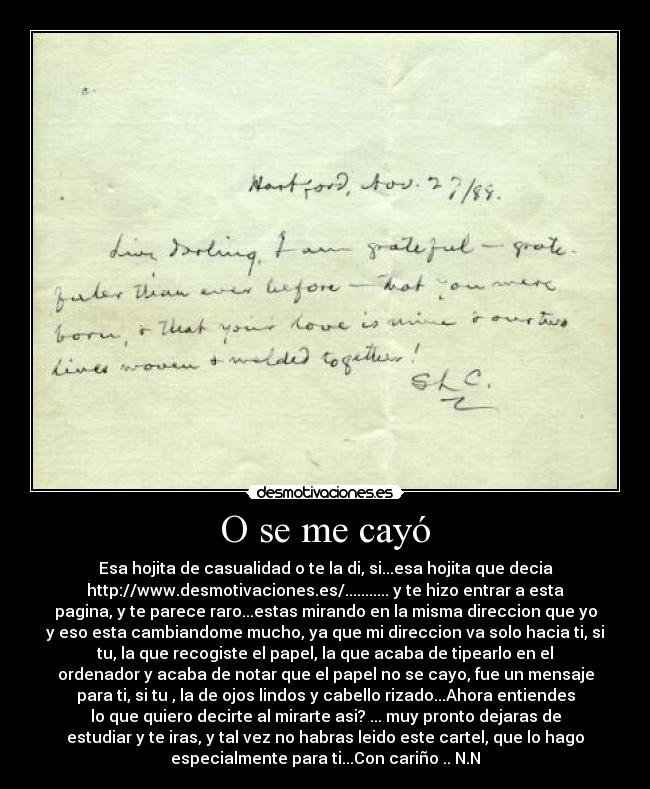 Hartford, Nov. 27/88.
Livy Darling, I am grateful — grate-
fuler than ever before — that you were
born, & that your love is mine & our two
lives woven & welded together!
SLC.
desmotivaciones.es
O se me cayó
Esa hojita de casualidad o te la di, si...esa hojita que decia
http://www.desmotivaciones.es/.......... y te hizo entrar a esta
pagina, y te parece raro...estas mirando en la misma direccion que yo
y eso esta cambiandome mucho, ya que mi direccion va solo hacia ti, si
tu, la que recogiste el papel, la que acaba de tipearlo en el
ordenador y acaba de notar que el papel no se cayo, fue un mensaje
para ti, si tu , la de ojos lindos y cabello rizado...Ahora entiendes
lo que quiero decirte al mirarte asi? ... muy pronto dejaras de
estudiar y te iras, y tal vez no habras leido este cartel, que lo hago
especialmente para ti...Con cariño .. N.N